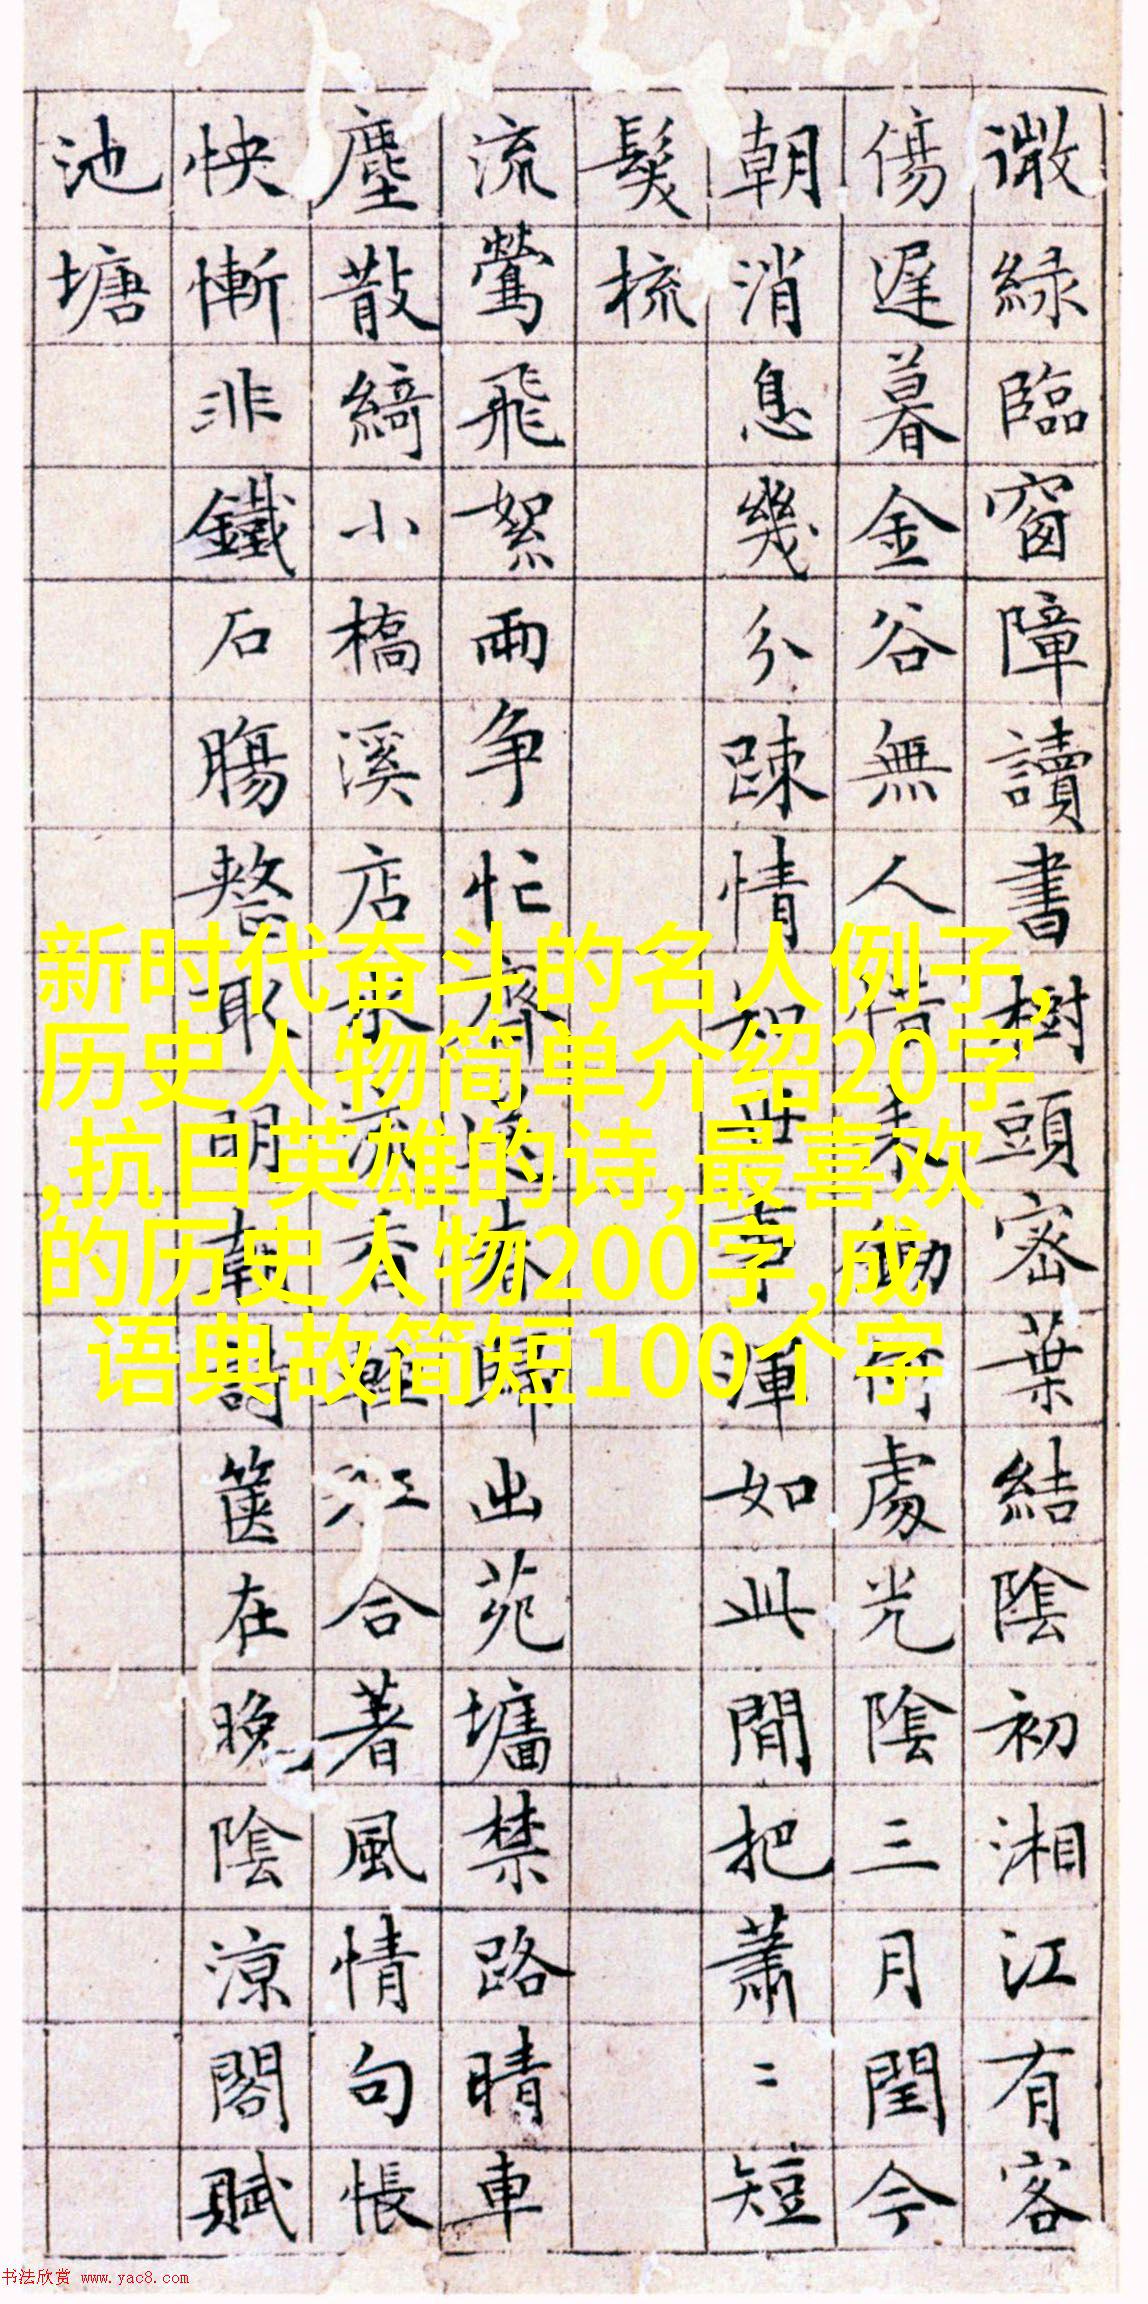 微綠臨窗障讀書樹頭密葉結陰初湘江有客
傷遲暮金谷無人惜何處光陰三月閏今
朝消息幾分踈情知世事渾如此間把蕭〻短
髮梳
流鶯飛絮兩争忙齊送春歸出苑墻禁路晴車
塵散綺小橋溪店香江合著風情句悵
怏慚非鐵石腸耶明篋在晚陰涼閣賦
池塘
新时代奋斗的名人例子,
历史人物简单介绍20字
,抗日英雄的诗,最喜欢
的历史人物200字,成
语典故简短100个字
书法欣赏 www.yac8.com